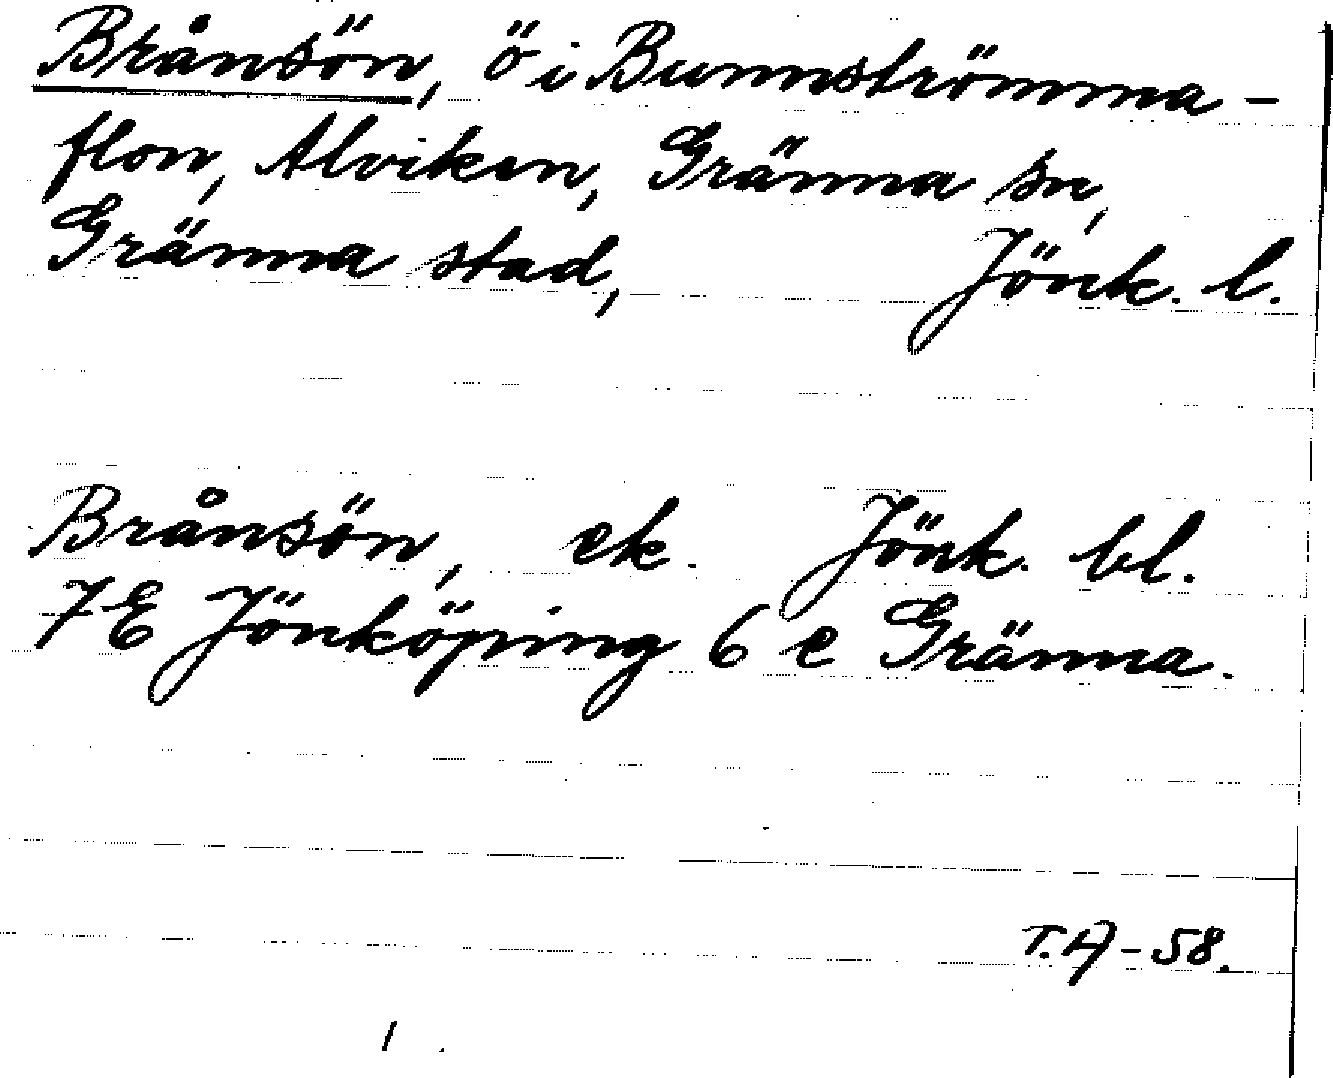 Brånsön, ö i Bunnströmma-
flon, Alviken, Gränna sn,
Gränna stad, Jönk. l.
Brånsön, ek. Jönk. bl.
7E Jönköping 6 e Gränna.
T.A-58.
1